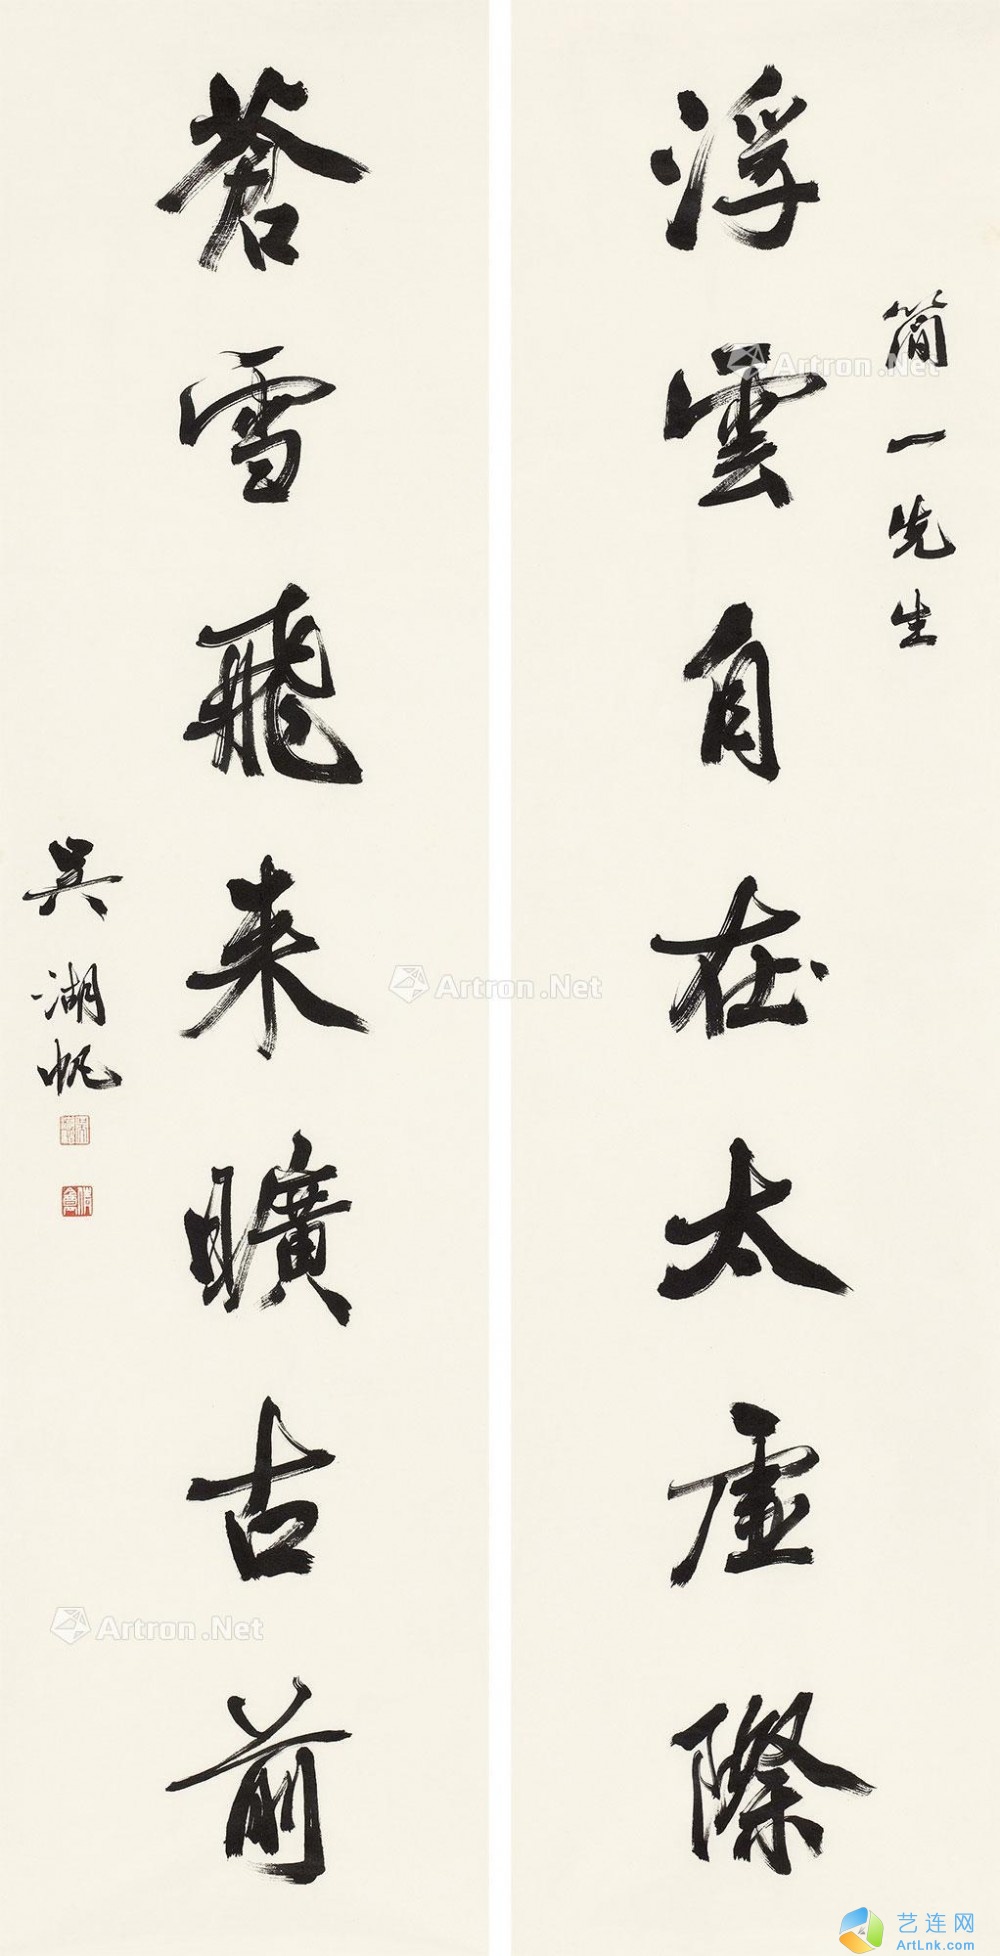 簡一先生
浮雲自在太虛際
蒼雪飛来曠古前
吳湖帆
Artron.Net
Artron.Net
Artron.Net
艺连网
ArtLnk.com